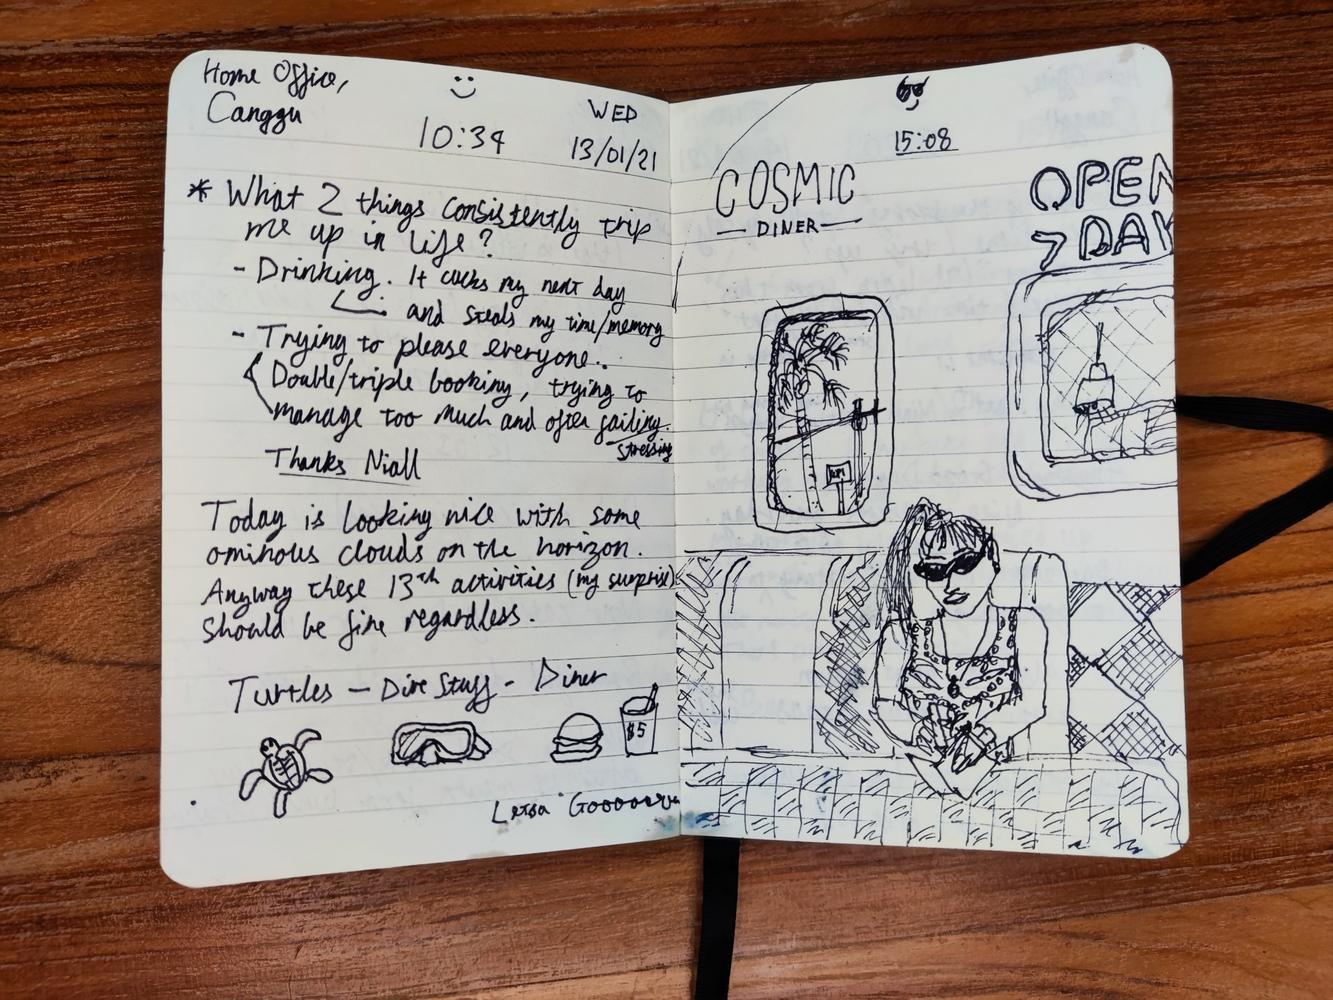 Home Office,
Canggu
10:34
WED
13/01/21
* What 2 things consistently trip
me up in life?
- Drinking. It cucks my next day
and steals my time/memory
- Trying to please everyone..
Double/triple booking, trying to
manage too much and often failing.
stressing
Thanks Niall
Today is looking nice with some
ominous clouds on the horizon.
Anyway these 13th activities (my surprise)
should be fine regardless.
Turtles - Dive Stuff - Diner
$5
Letsa Gooooo
15:08
COSMIC
- DINER -
OPEN
7 DAY